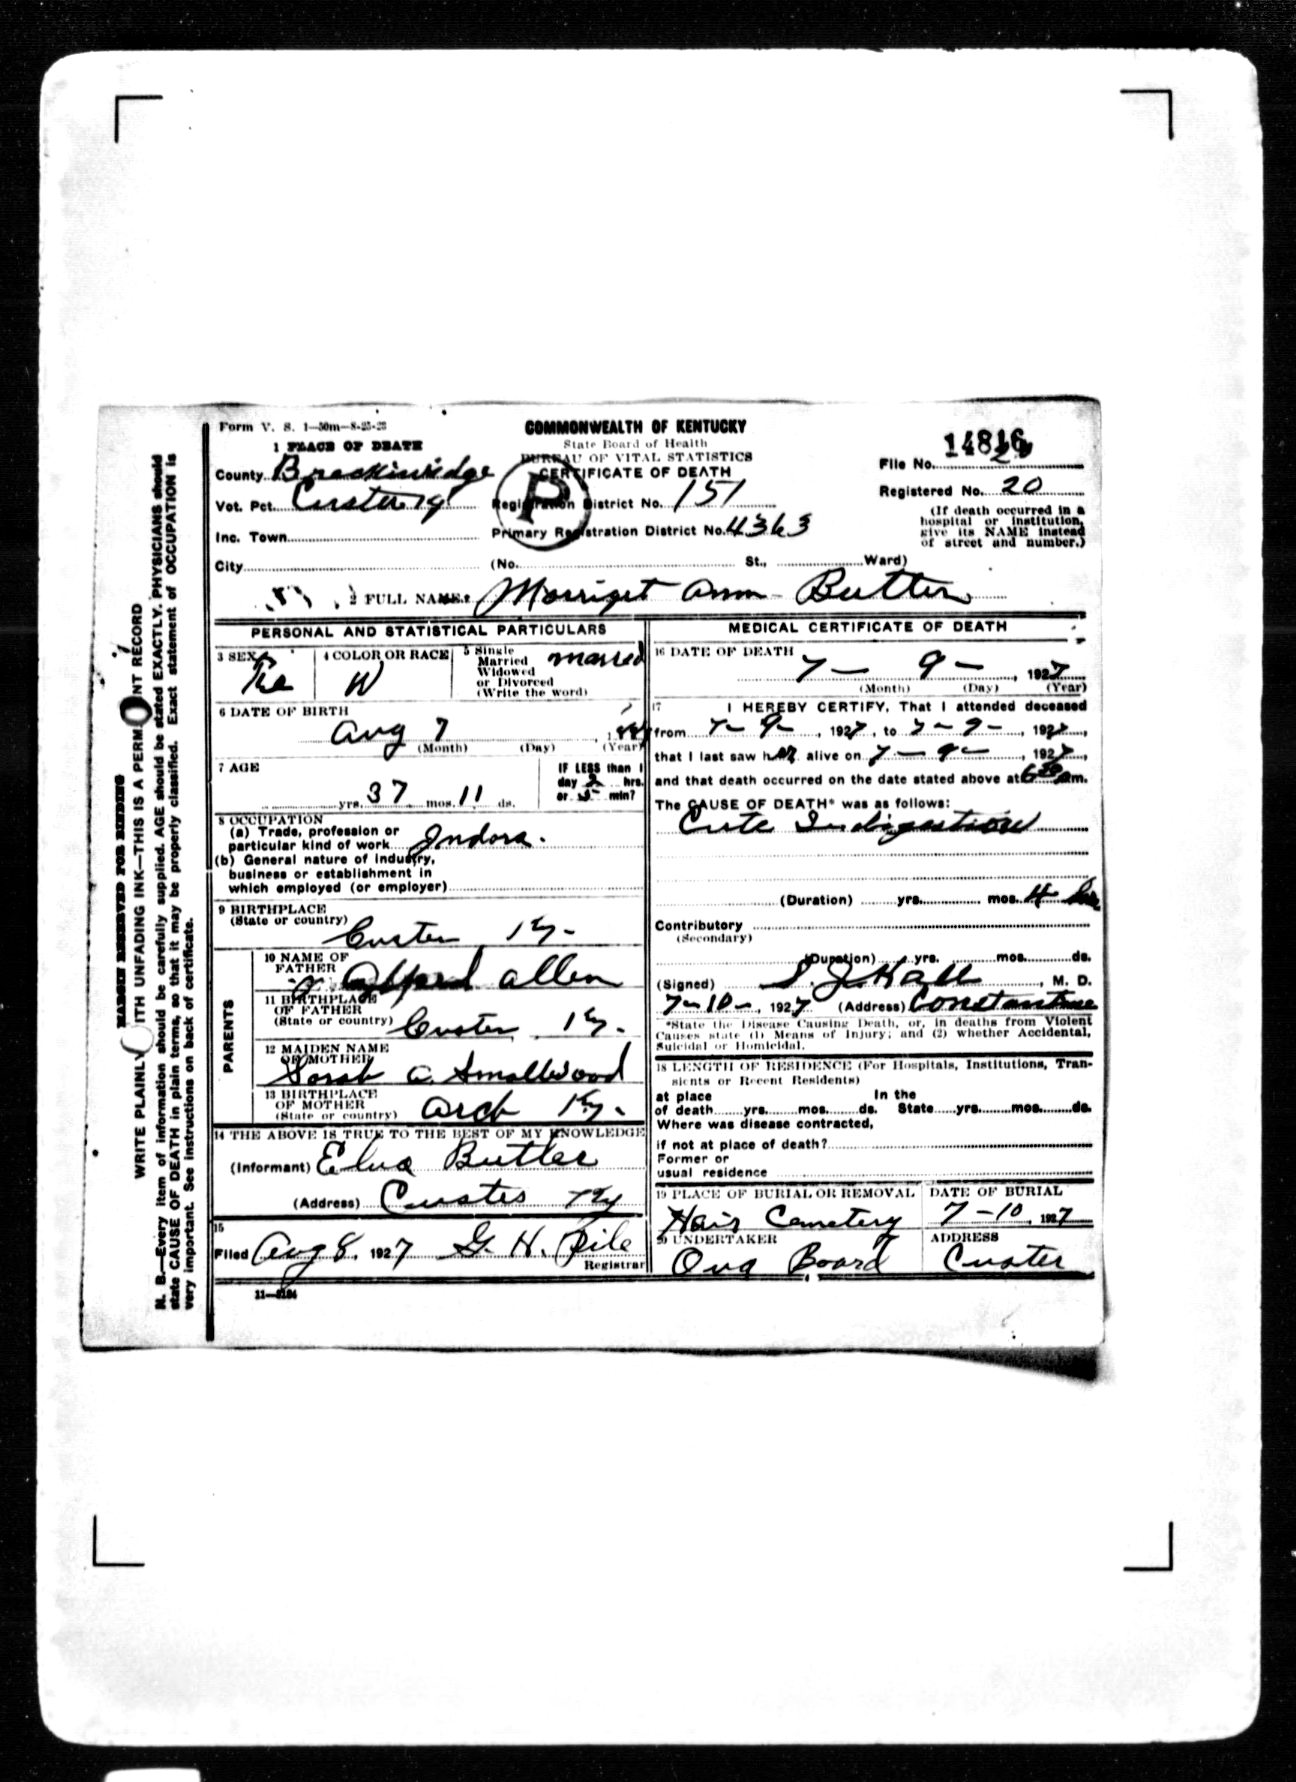 Form V. S. 1—50m—8-25-25
COMMONWEALTH OF KENTUCKY
State Board of Health
BUREAU OF VITAL STATISTICS
CERTIFICATE OF DEATH
1 PLACE OF DEATH
File No. 14816
County Breckinridge
Registered No. 20
Vot. Pct. Custer
Registration District No. 151
P
Inc. Town
Primary Registration District No. 4363
(If death occurred in a hospital or institution, give its NAME instead of street and number.)
City (No. St., Ward)
2 FULL NAME Ann Butler
PERSONAL AND STATISTICAL PARTICULARS
3 SEX
4 COLOR OR RACE W
5 Single Married Widowed or Divorced (Write the word) married
6 DATE OF BIRTH
Aug 7
(Month) (Day) (Year)
7 AGE
IF LESS than 1 day 2 hrs. or min?
yrs. 37 mos. 11 ds.
8 OCCUPATION
(a) Trade, profession or particular kind of work Indora.
(b) General nature of industry, business or establishment in which employed (or employer)
9 BIRTHPLACE
(State or country)
Custer, Ky.
PARENTS
10 NAME OF FATHER Alford Allen
11 BIRTHPLACE OF FATHER
(State or country) Custer Ky.
12 MAIDEN NAME OF MOTHER
Sarah A. Smallwood
13 BIRTHPLACE OF MOTHER
(State or country) Ky.
14 THE ABOVE IS TRUE TO THE BEST OF MY KNOWLEDGE
(Informant) Butler
(Address) Custer Ky
15
Filed Aug 8, 1927 G. H. Pile
Registrar
11—3184
MEDICAL CERTIFICATE OF DEATH
16 DATE OF DEATH
7 — 9 — 1927
(Month) (Day) (Year)
17 I HEREBY CERTIFY, That I attended deceased
from 7 — 9 —, 1927, to 7 — 9 —, 1927,
that I last saw her alive on 7 — 9 —, 1927,
and that death occurred on the date stated above at 6 m.
The CAUSE OF DEATH* was as follows:
Cute Indigestion
(Duration) yrs. mos. 4 hrs
Contributory
(Secondary)
(Duration) yrs. mos. ds.
(Signed) S. J. Hall, M. D.
7-10-, 1927 (Address) Constantine
*State the Disease Causing Death, or, in deaths from Violent
Causes state (1) Means of Injury; and (2) whether Accidental,
Suicidal or Homicidal.
18 LENGTH OF RESIDENCE (For Hospitals, Institutions, Tran-
sients or Recent Residents)
at place In the
of death yrs. mos. ds. State yrs. mos. ds.
Where was disease contracted,
if not at place of death?
Former or
usual residence
19 PLACE OF BURIAL OR REMOVAL DATE OF BURIAL
Cemetery 7-10, 1927
20 UNDERTAKER ADDRESS
Ova Board Custer
MARGIN RESERVED FOR BINDING
WRITE PLAINLY WITH UNFADING INK—THIS IS A PERMANENT RECORD
N. B.—Every item of information should be carefully supplied. AGE should be stated EXACTLY. PHYSICIANS should
state CAUSE OF DEATH in plain terms, so that it may be properly classified. Exact statement of OCCUPATION is
very important. See instructions on back of certificate.